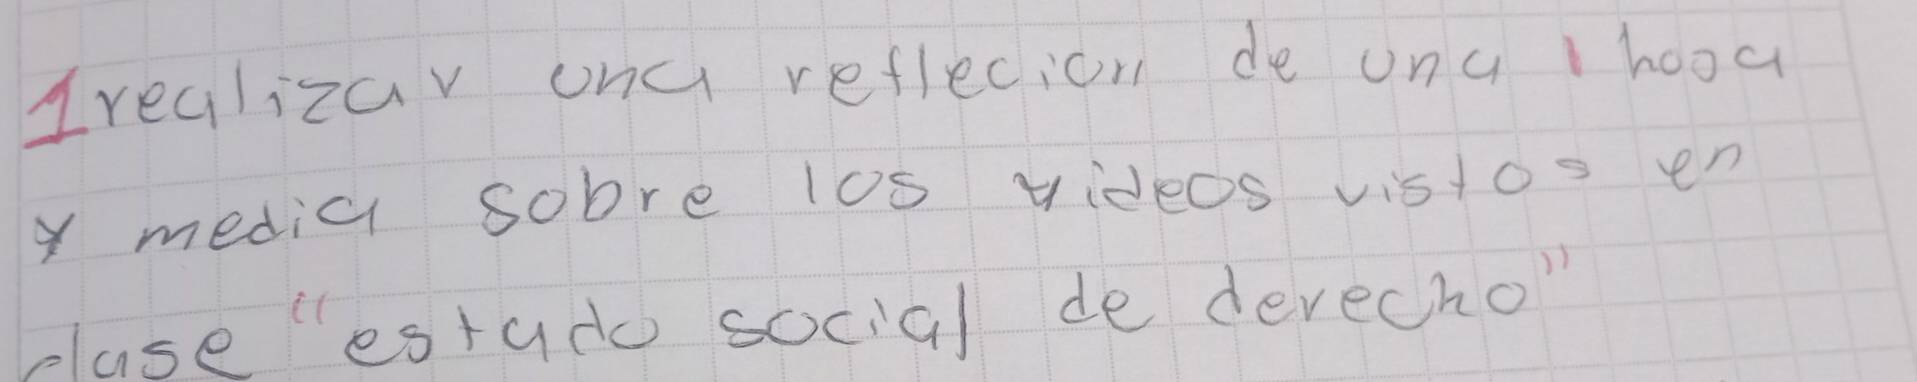 1 realizar una reflecion de una hooa
y media sobre los videos vistos en
clase "estado social de derecho"